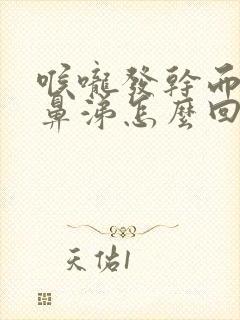 喉嚨發幹而
鼻涕怎麼回
天佑1